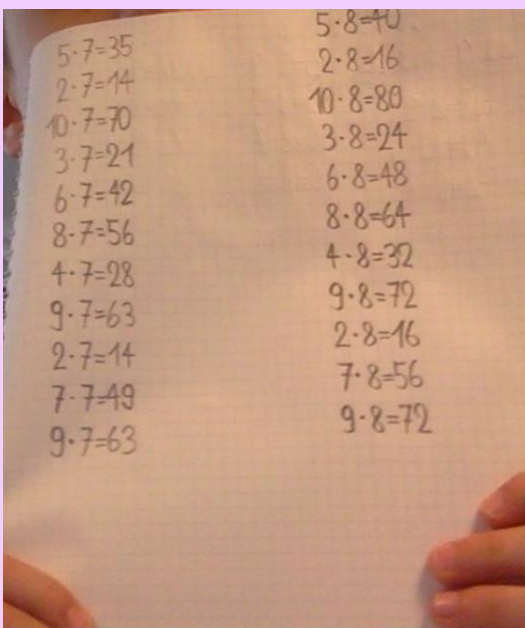 5·7=35
2·7=14
10·7=70
3·7=21
6·7=42
8·7=56
4·7=28
9·7=63
2·7=14
7·7=49
9·7=63
5·8=40
2·8=16
10·8=80
3·8=24
6·8=48
8·8=64
4·8=32
9·8=72
2·8=16
7·8=56
9·8=72